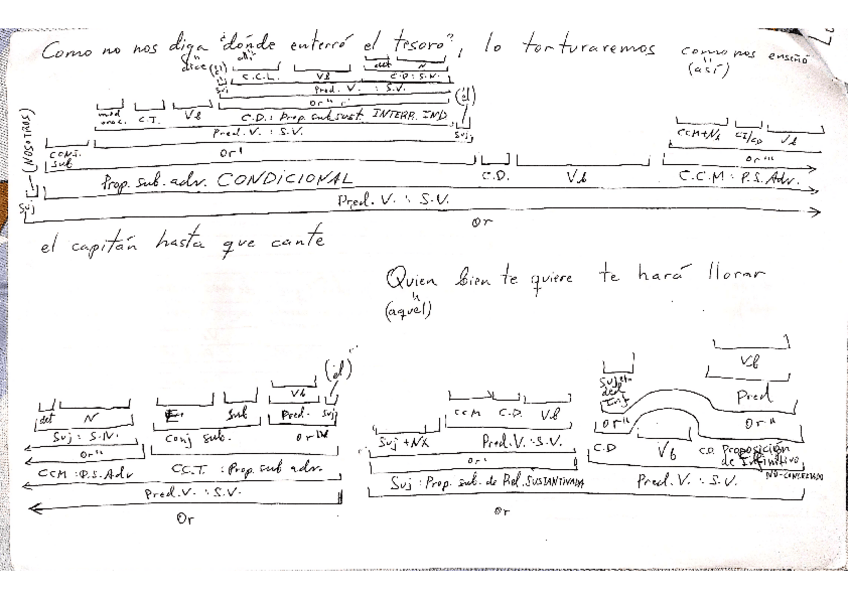 Como no nos diga "dónde enterró el tesoro", lo torturaremos como nos enseñó
dice (él) allí (así)
C.C.L. Vb det N
Suj Pred. V. : S.V. C.D: S.N.
mod orac. C.T. Vb Or'' (él) CCM+Nx CI/CD Vb
C.D.: Prop. sub sust INTERR. IND Suj
(NOSOTROS) conj. sub Pred. V. : S.V. Or'''
Or'
Prop. sub. adv. CONDICIONAL C.D. Vb C.C.M : P.S. Adv.
Suj Pred. V. : S.V.
Or
el capitán hasta que cante
Quien bien te quiere te hará llorar
(aquel)
Vb
(él) Suj del Inf Pred
det N E. Sub Vb Pred. Suj CCM C.D. Vb Or'' Or''
Suj : S.N. Conj sub. Or Suj + NX Pred. V. : S.V. C.D Vb C.D. Proposición de Infinitivo
Or'' Or' NO-CONCERTADO
CCM : P.S. Adv C.C.T. : Prop sub adv. Suj : Prop. sub. de Rel. SUSTANTIVADA Pred. V. : S.V.
Pred. V. : S.V.
Or Or